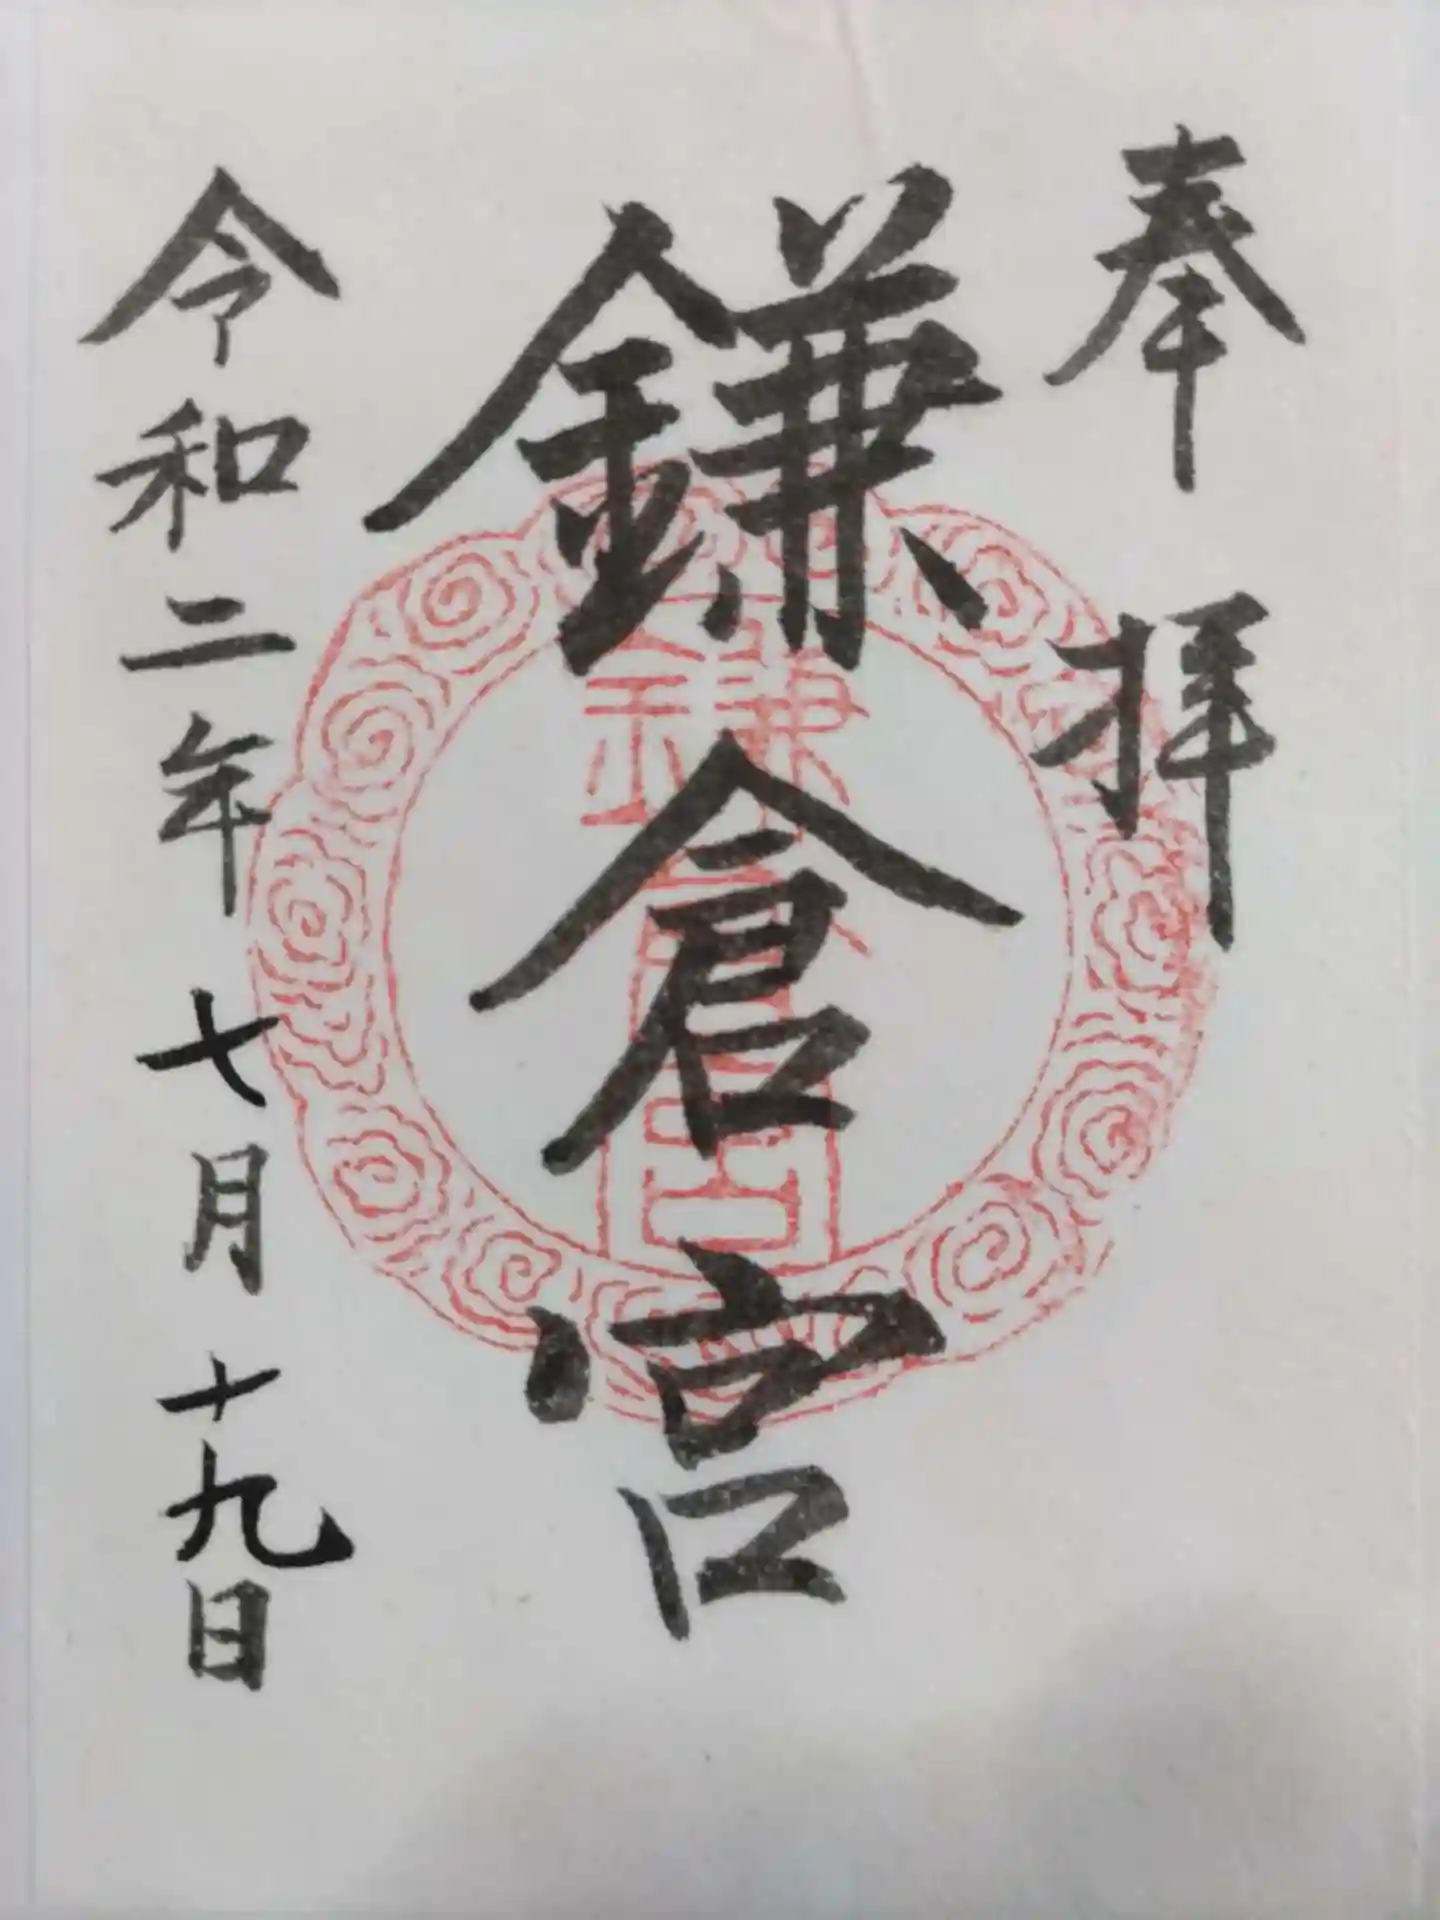 奉拝
鎌倉宮
令和二年七月十九日
鎌倉宮